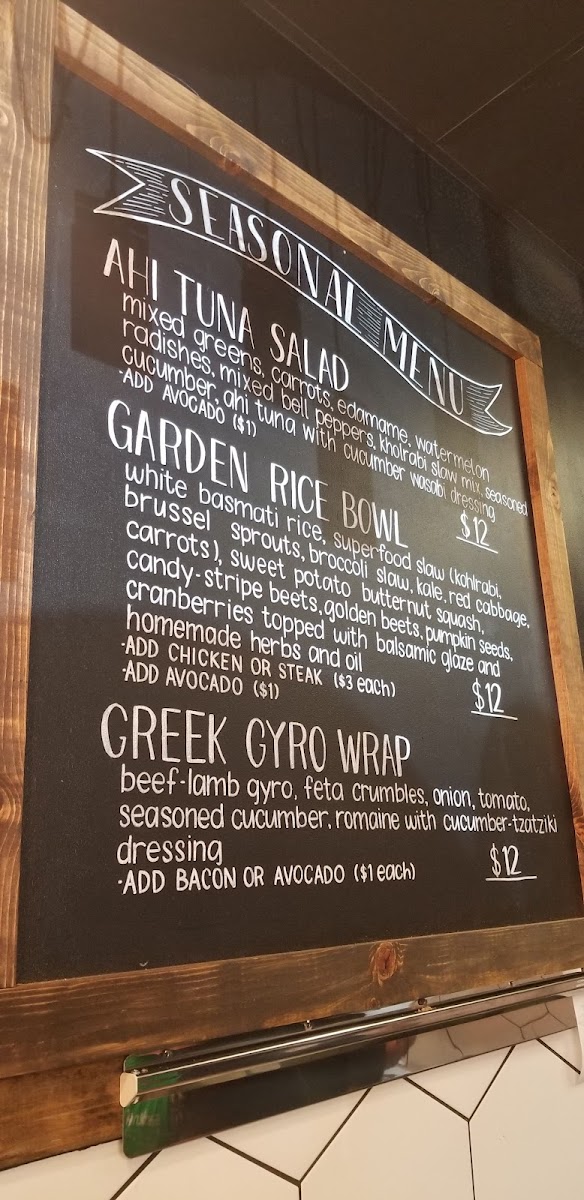 SEASONAL MENU
AHI TUNA SALAD
mixed greens, carrots, edamame, watermelon
radishes, mixed bell peppers, kholrabi slaw mix, seasoned
cucumber, ahi tuna with cucumber wasabi dressing
·ADD AVOCADO ($1)
$12
GARDEN RICE BOWL
white basmati rice, superfood slaw (kohlrabi,
brussel sprouts, broccoli slaw, kale, red cabbage,
carrots), sweet potato butternut squash,
candy-stripe beets, golden beets, pumpkin seeds,
cranberries topped with balsamic glaze and
homemade herbs and oil
·ADD CHICKEN OR STEAK ($3 each)
·ADD AVOCADO ($1)
$12
GREEK GYRO WRAP
beef-lamb gyro, feta crumbles, onion, tomato,
seasoned cucumber, romaine with cucumber-tzatziki
dressing
·ADD BACON OR AVOCADO ($1 each)
$12